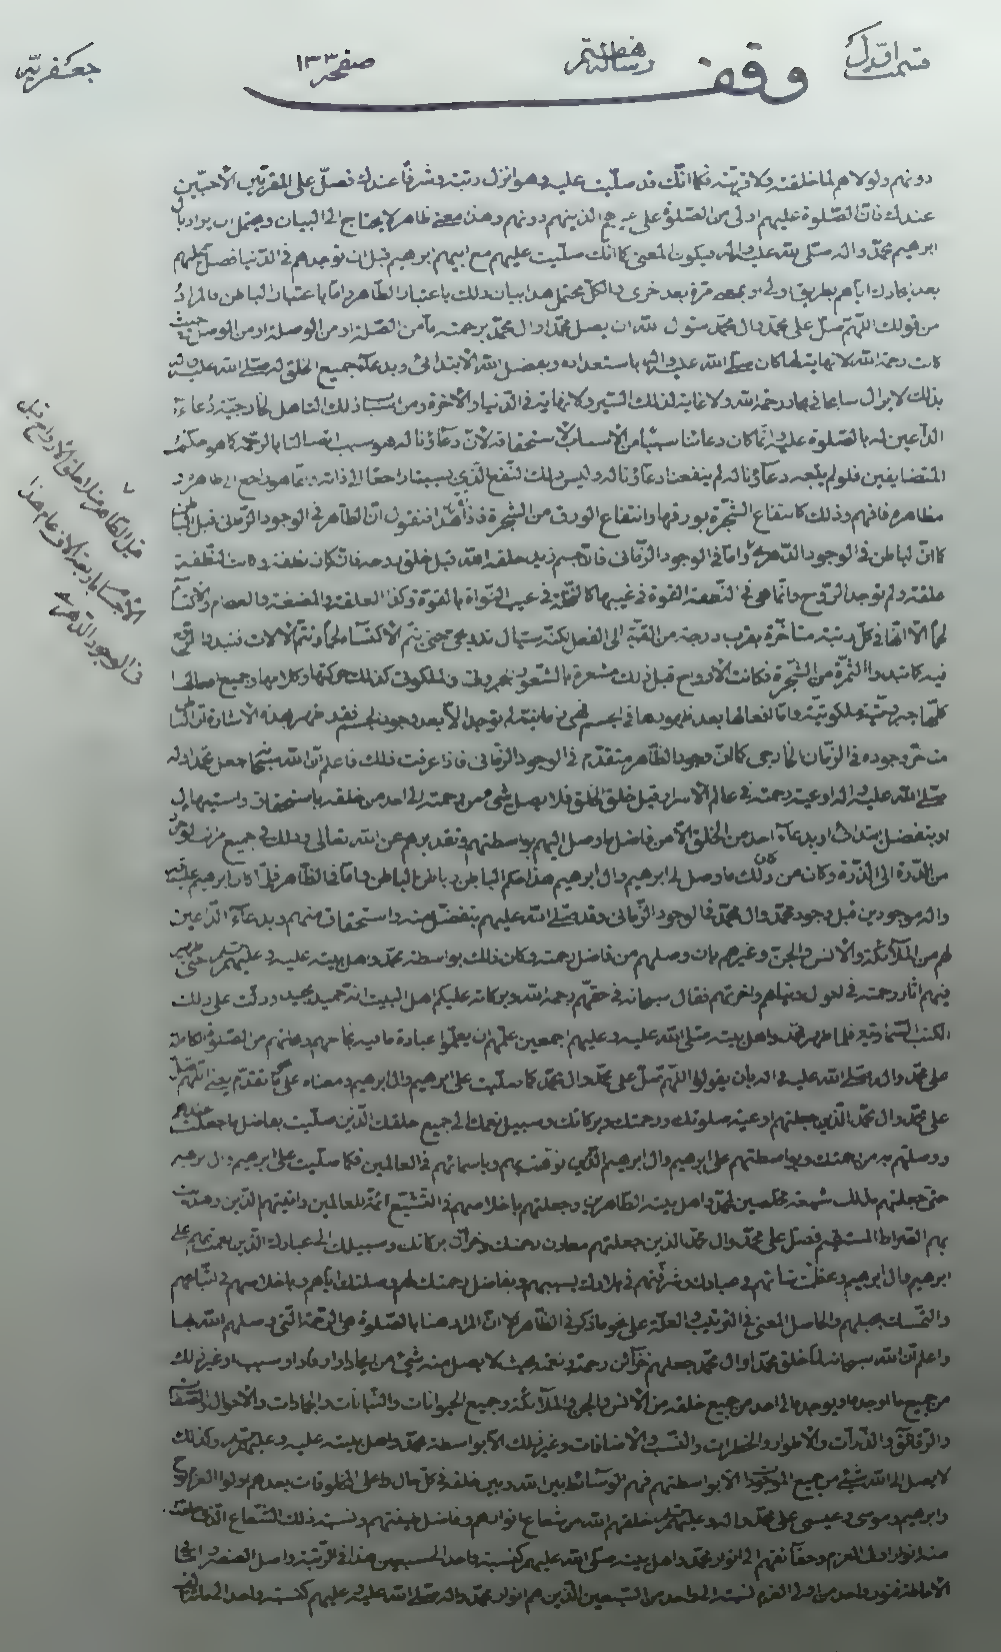 قسمت اول
رسالة هفتم
وقف
صفحه ١٣٣
جعفریه
دونهم ولولاهم لما خلقته ولا قربته فكما انك قد صليت عليه وهو انزل رتبة وشرفا عندك فصل على المقربين الاحبين
عندك فان الصلوة عليهم اولى من الصلوة على غيرهم الذين هم دونهم وهذا معنى ظاهر لا يحتاج الى البيان ويحتمل ان يراد بآل
ابرهيم محمد واله صلى الله عليه واله فيكون المعنى كما انك صليت عليهم مع ابيهم ابرهيم قبل ان توجدهم فى الدنيا فصل عليهم
بعد ايجادك اياهم بطريق اولى او بمعنى مرة بعد اخرى والكل محتمل هذا بيان ذلك باعتبار الظاهر واما باعتبار الباطن فالمراد
من قولك اللهم صل على محمد وال محمد الله ان يصل محمدا وال محمد برحمته من الصلة او من الوصلة او من الوصل حيث
كانت رحمة الله لا نهاية لها كان صلى الله عليه واله باستعداده وبفضل الله الابتدائى وبدعاء جميع الخلق له صلى الله عليه واله
بذلك لا يزال سابحا فى بحار رحمة الله ولا غاية لذلك السير ولا نهاية فى الدنيا والاخرة ومن اسباب ذلك التاهل الخارجية دعاء
الداعين له بالصلوة عليه وانما كان دعائنا سببا من الاسباب لاستحقاقه لان دعاؤنا له هو سبب اتصالنا بالرحمة كما هو حكم
المتضايفين فلو لم ينفعه دعاؤنا له لم ينفعنا دعاؤنا له وليس ذلك النفع الذى بسببنا راجعا الى ذاته وانما هو راجع الى ظاهره و
مظاهره فافهم وذلك كانتفاع الشجرة بورقها وانتفاع الورق من الشجرة فنقول ان الظاهر فى الوجود الزمانى قبل الباطن
كما ان الباطن فى الوجود الدهرى واما فى الوجود الزمانى فان جسم زيد خلقه الله قبل خلق روحه فانه كان نطفة
علقة ولم توجد الروح وانما هى فى النطفة بالقوة فى غيبها كالنخلة فى غيب النواة بالقوة وكذا العلقة والمضغة والعظام
لحما الا انها فى كل رتبة متاخرة تقرب درجة من القوة الى الفعل
فيه كما تبدوا الثمرة من الشجرة فكانت الارواح قبل ذلك
كلها جبروتية وملكوتية واما افعالها بعد ظهورها فى الجسم فهى زمانية لم توجد الا بعد وجود الجسم فقد ظهر بهذه الاشارة ان الباطن
متاخر وجوده فى الزمان الخارجى كما ان وجود الظاهر متقدم فى الوجود الزمانى فاذا عرفت ذلك فاعلم ان الله سبحانه جعل محمدا واله
صلى الله عليه واله اوعية رحمته فى عالم الاسرار قبل خلق الخلق فلا يصل شىء من رحمته الى احد من خلقه باستحقاق
او بتفضل ابتداء او بدعاء احد من الخلق الا من فاضل ما وصل اليهم بواسطتهم وتقديرهم عن الله تعالى وذلك فى جميع
من الذرة الى الذرة وكان من ذلك ما وصل الى ابرهيم وال ابرهيم هذا حكم الباطن واما فى الظاهر فلما كان ابرهيم
واله موجودين قبل وجود محمد وال محمد فى الوجود الزمانى وقد صلى الله عليهم بتفضل منه واستحقاق منهم وبدعاء الداعين
لهم من الملائكة والانس والجن وغيرهم بان وصلهم من فاضل رحمته وكان ذلك بواسطة محمد واهل بيته عليه وعليهم السلم حتى ظهر
فيهم اثار رحمته فى احوال دنياهم واخرتهم فقال سبحانه فى حقهم رحمة الله وبركاته عليكم اهل البيت انه حميد مجيد ودلت على ذلك
الكتب السماوية فلما ظهر محمد واهل بيته صلى الله عليه وعليهم اجمعين علمهم ان يعلموا عباده ما فيه نجاحهم ونجاتهم من الصلوة الكاملة
على محمد واله صلى الله عليه واله بان يقولوا اللهم صل على محمد وال محمد كما صليت على ابرهيم وال ابرهيم ومعناه على ما تقدم يعنى اللهم صل
على محمد وال محمد الذين جعلتهم اوعية صلوتك ورحمتك وبركاتك وسبيل نعمك الى جميع خلقك الذين صليت بفاضل ما جعلت عندهم
ووصلتهم به من رحمتك وبواسطتهم على ابرهيم وال ابرهيم الذين نوهت بهم وباسمائهم فى العالمين فكما صليت على ابرهيم وال ابرهيم
حتى جعلتهم بذلك شيعة مخلصين لمحمد واهل بيته الطاهرين وجعلتهم باخلاصهم فى التشيع ائمة للعالمين
بهم الصراط المستقيم فصل على محمد وال محمد الذين جعلتهم معادن رحمتك وخزائن بركاتك وسبيلك الى عبادك الذين نعمت بهم على
ابرهيم وال ابرهيم وعظمت شانهم فى عبادك وشرفتهم فى بلادك بسببهم وبفاضل رحمتك لهم وصلتك اياهم وباخلاصهم فى اتباعهم
والتمسك بحبلهم والحاصل المعنى فى الترتيب والعلة على نحو ما ذكر فى الظاهر الا ان المراد هنا بالصلوة هى الرحمة التى وصلهم الله بها
واعلم ان الله سبحانه لما خلق محمدا وال محمد جعلهم خزائن رحمته ونعمه بحيث لا يصل منه شىء من ايجاد او امداد او سبب او غير ذلك
من جميع ما اوجد وما يوجد الى احد من جميع خلقه من الانس والجن والملائكة وجميع الحيوانات والنباتات والجمادات والاحوال والصفات
والرقائق والذرات والاطوار والخطرات والنسب والاضافات وغير ذلك الا بواسطة محمد واهل بيته عليه وعليهم السلم وكذلك
لا يصل الى الله شىء من جميع الموجودات الا بواسطتهم فهم الوسائط بين الله وبين خلقه فى كل حال واعلى المخلوقات بعدهم اولوا العزم نوح
وابرهيم وموسى وعيسى على محمد واله وعليهم السلم خلقهم الله من شعاع انوارهم وفاضل طينتهم ونسبة ذلك الشعاع الذى خلقت
منه انوار اولى العزم وحقائقهم الى انوار محمد واهل بيته صلى الله عليهم كنسبة واحد الى سبعين هذا فى الرتبة واصل العنصر
الاحاطة فنور واحد من اولى العزم نسبته الى واحد من السبعين الذين هم انوار محمد واله صلى الله عليه وعليهم كنسبة واحد الى مائة الف
قبل الظاهر عند خلق الارواح قبل
الاجسام باربعة الاف عام هذا
فى الوجود الدهرى